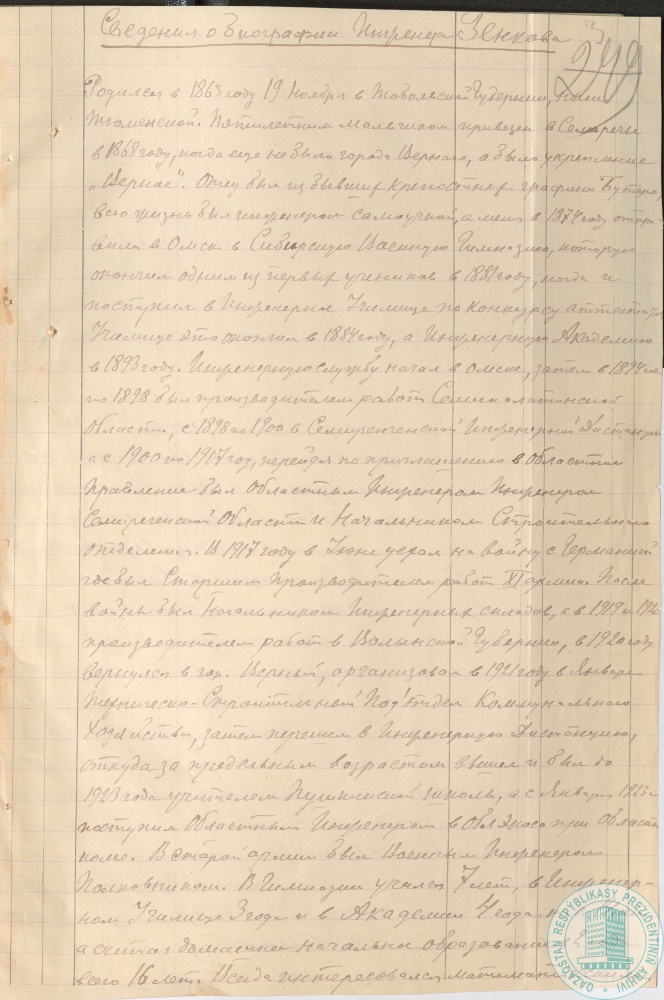 Сведения о биографии Инженера Зенкова
3
299
Родился в 1863 году 19 ноября в Тобольской Губернии, ныне
Тюменской. Пятилетним мальчиком привезен в Семиречье
в 1868 году, когда еще не было города Верного, а было укрепление
„Верное". Отец был из бывших крепостных графини Бутеро,
всю жизнь был инженером самоучкой, а меня в 1874 году отпра-
вили в Омск в Сибирскую Военную Гимназию, которую
окончил одним из первых учеников в 1881 году, когда и
поступил в Инженерное Училище по конкурсу аттестатов
Училище это окончил в 1884 году, а Инженерную Академию
в 1893 году. Инженерную службу начал в Омске, затем в 1894
по 1898 был производителем работ Семипалатинской
Области, с 1898 по 1900 в Семиреченской Инженерной Дистанции
а с 1900 по 1917 год, перейдя по приглашению в Областное
Правление был Областным Инженером Инженером
Семиреченской Области и Начальником Строительного
отделения. В 1917 году в Июне уехал на войну с Германией
где был Старшим производителем работ XI армии. После
войны был Начальником Инженерных складов, а в 1919 и
производителем работ в Волынской Губернии, в 1920 году
вернулся в гор. Верный, организовал в 1921 году в Январе
Техническо-Строительный Под'отдел Коммунального
Хозяйства, затем перешел в Инженерную Дистанцию,
откуда за предельным возрастом вышел и был до
1923 года учителем Пушкинской школы, а с Января 1923 г
поступил Областным Инженером в при Област
коме. В старой армии был Военным Инженером
Полковником. В Гимназии учился 7 лет, в Инженер-
ном Училище 3 года и в Академии 4 года
а считая домашнее начальное образование
всего 16 лет. Всегда интересовался
QAZAQSTAN RESPÝBLIKASY PREZIDENTINIŃ ARHIVI